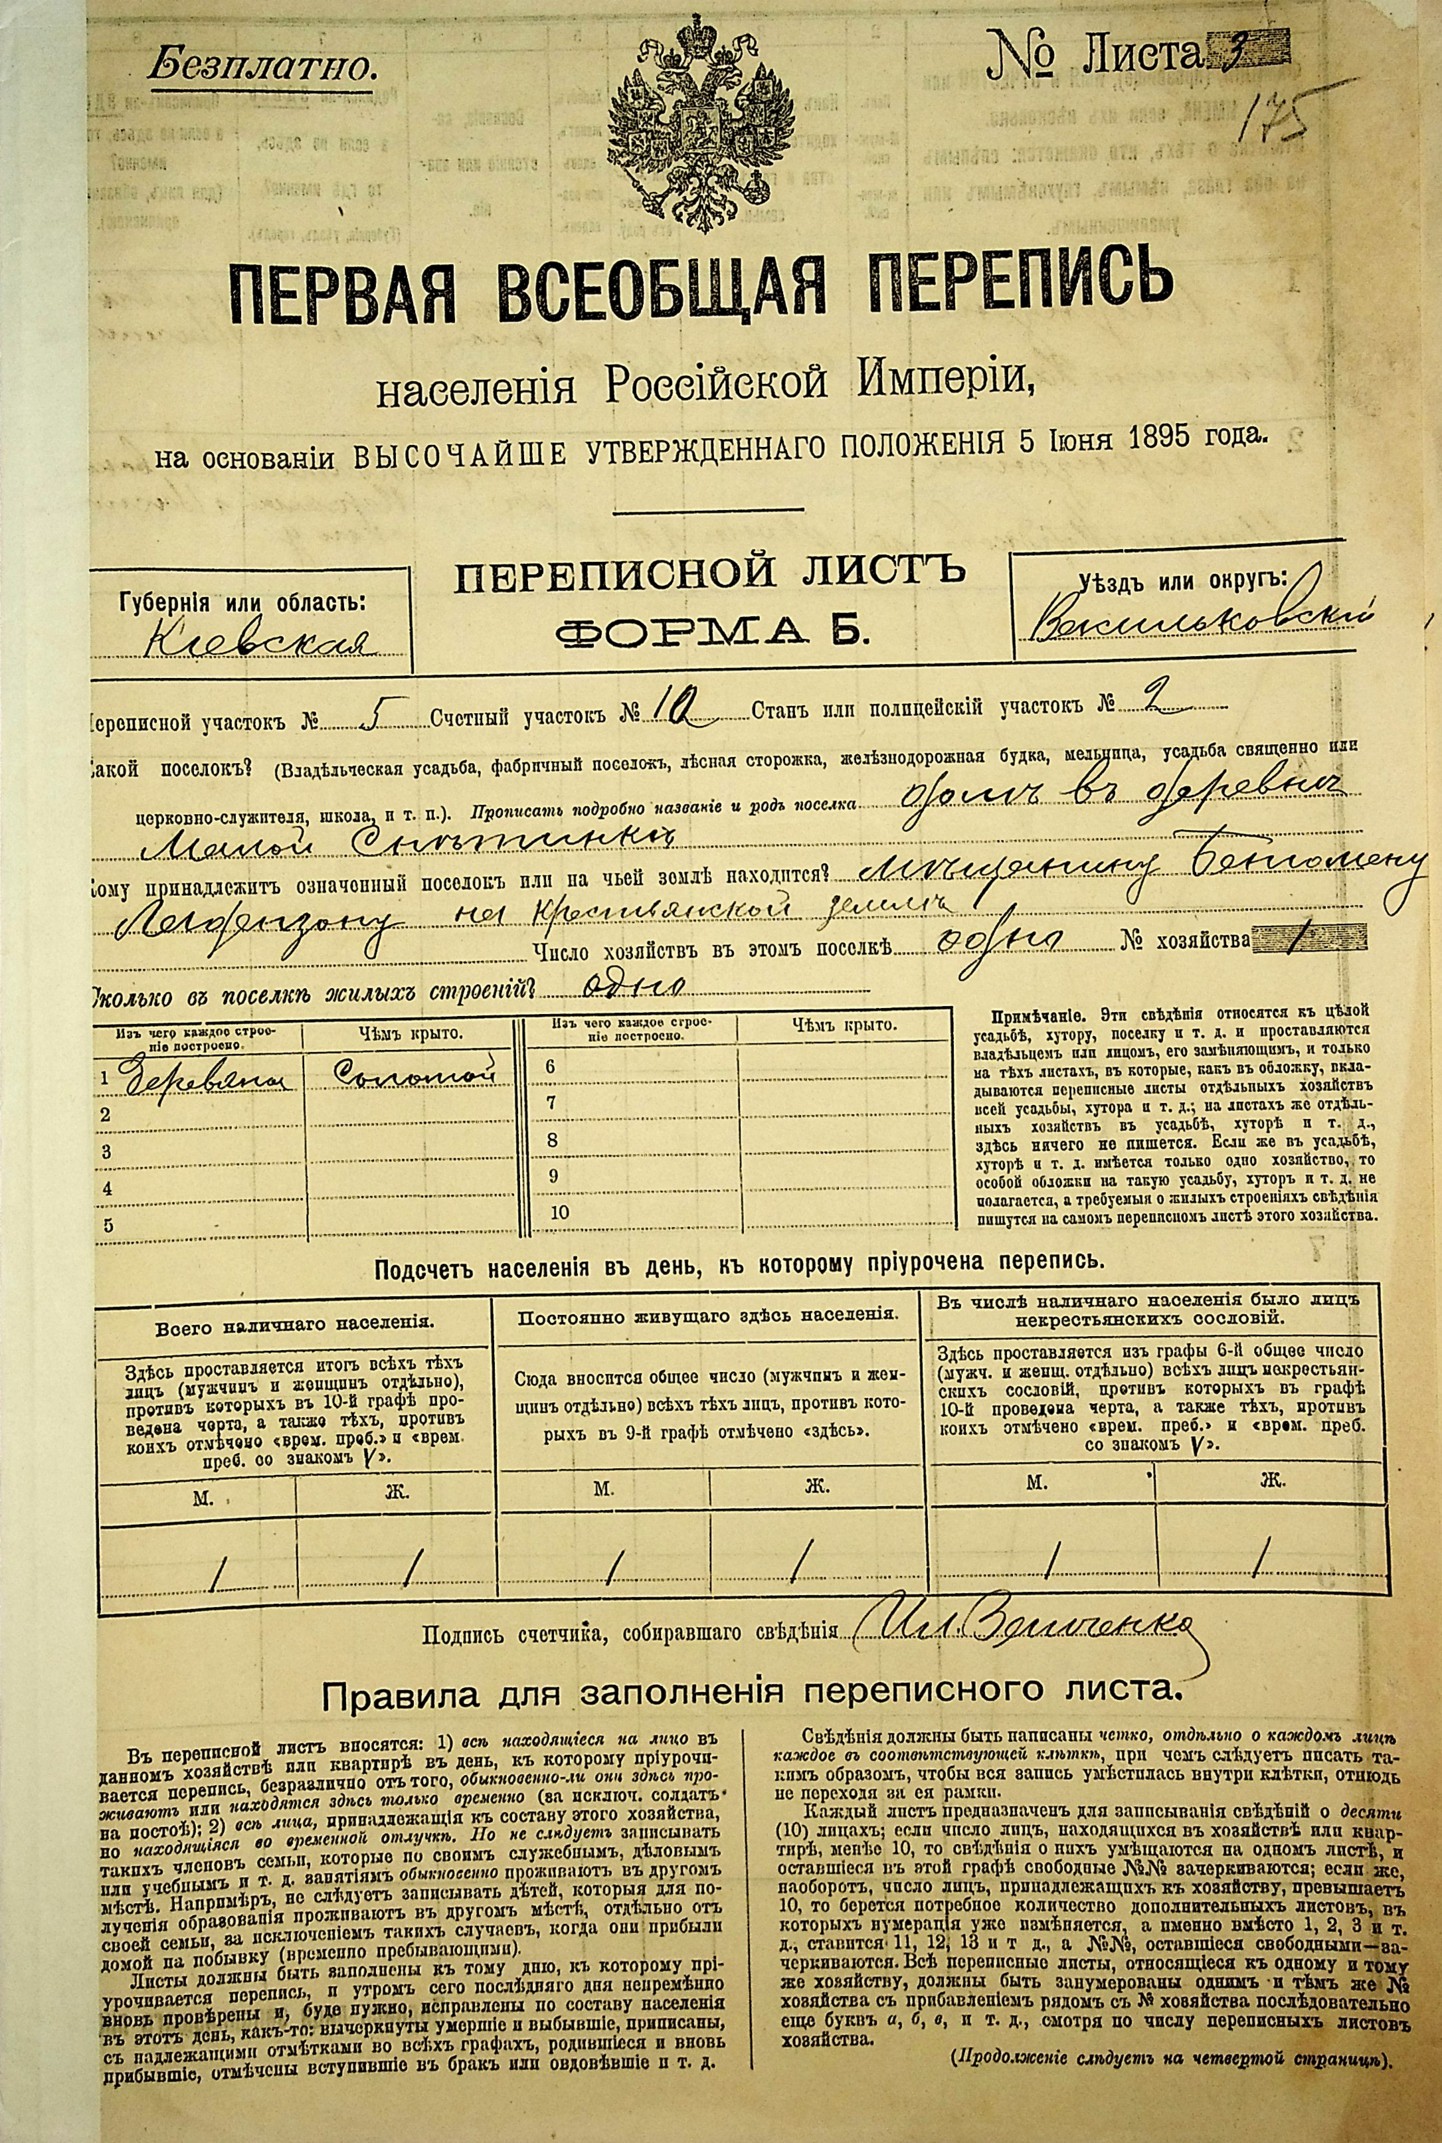 Безплатно.
№ Листа 3
175
ПЕРВАЯ ВСЕОБЩАЯ ПЕРЕПИСЬ
населенія Россійской Имперіи,
на основаніи ВЫСОЧАЙШЕ УТВЕРЖДЕННАГО ПОЛОЖЕНІЯ 5 Іюня 1895 года.
ПЕРЕПИСНОЙ ЛИСТЪ
ФОРМА Б.
Губернія или область:
Кіевская
Уѣздъ или округъ:
Васильковскій
ереписной участокъ № 5 Счетный участокъ № 10 Станъ или полицейскій участокъ № 2
акой поселокъ? (Владѣльческая усадьба, фабричный поселокъ, лѣсная сторожка, желѣзнодорожная будка, мельница, усадьба священно или
церковно-служителя, школа, и т. п.). Прописать подробно названіе и родъ поселка домъ въ деревнѣ
Малой Снѣтинкѣ
ому принадлежитъ означенный поселокъ или на чьей землѣ находится? Мѣщанину
на крестьянской землѣ
Число хозяйствъ въ этомъ поселкѣ одно № хозяйства 1
Сколько въ поселкѣ жилыхъ строеній? одно
Изъ чего каждое строе-
ніе построено.
Чѣмъ крыто.
Изъ чего каждое строе-
ніе построено.
Чѣмъ крыто.
1 Деревяна Соломой 6
2 7
3 8
4 9
5 10
Примѣчаніе. Эти свѣдѣнія относятся къ цѣлой
усадьбѣ, хутору, поселку и т. д. и проставляются
владѣльцемъ или лицомъ, его замѣняющимъ, и только
на тѣхъ листахъ, въ которые, какъ въ обложку, вкла-
дываются переписные листы отдѣльныхъ хозяйствъ
всей усадьбы, хутора и т. д.; на листахъ же отдѣль-
ныхъ хозяйствъ въ усадьбѣ, хуторѣ и т. д.,
здѣсь ничего не пишется. Если же въ усадьбѣ,
хуторѣ и т. д. имѣется только одно хозяйство, то
особой обложки на такую усадьбу, хуторъ и т. д. не
полагается, а требуемыя о жилыхъ строеніяхъ свѣдѣнія
пишутся на самомъ переписномъ листѣ этого хозяйства.
Подсчетъ населенія въ день, къ которому пріурочена перепись.
Всего наличнаго населенія.
Здѣсь проставляется итогъ всѣхъ тѣхъ
лицъ (мужчинъ и женщинъ отдѣльно),
противъ которыхъ въ 10-й графѣ про-
ведена черта, а также тѣхъ, противъ
коихъ отмѣчено «врем. преб.» и «врем.
преб. со знакомъ V».
М. Ж.
1 1
Постоянно живущаго здѣсь населенія.
Сюда вносится общее число (мужчинъ и жен-
щинъ отдѣльно) всѣхъ тѣхъ лицъ, противъ кото-
рыхъ въ 9-й графѣ отмѣчено «здѣсь».
М. Ж.
1 1
Въ числѣ наличнаго населенія было лицъ
некрестьянскихъ сословій.
Здѣсь проставляется изъ графы 6-й общее число
(мужч. и женщ. отдѣльно) всѣхъ лицъ некрестьян-
скихъ сословій, противъ которыхъ въ графѣ
10-й проведена черта, а также тѣхъ, противъ
коихъ отмѣчено «врем. преб.» и «врем. преб.
со знакомъ V».
М. Ж.
1 1
Подпись счетчика, собиравшаго свѣдѣнія
Правила для заполненія переписного листа.
Въ переписной листъ вносятся: 1) всѣ находящіеся на лицо въ
данномъ хозяйствѣ или квартирѣ въ день, къ которому пріурочи-
вается перепись, безразлично отъ того, обыкновенно-ли они здѣсь про-
живаютъ или находятся здѣсь только временно (за исключ. солдатъ
на постоѣ); 2) всѣ лица, принадлежащія къ составу этого хозяйства,
но находящіяся во временной отлучкѣ. Но не слѣдуетъ записывать
такихъ членовъ семьи, которые по своимъ служебнымъ, дѣловымъ
или учебнымъ и т. д. занятіямъ обыкновенно проживаютъ въ другомъ
мѣстѣ. Напримѣръ, не слѣдуетъ записывать дѣтей, которыя для по-
лученія образованія проживаютъ въ другомъ мѣстѣ, отдѣльно отъ
своей семьи, за исключеніемъ такихъ случаевъ, когда они прибыли
домой на побывку (временно пребывающими).
Листы должны быть заполнены къ тому дню, къ которому прі-
урочивается перепись, и утромъ сего послѣдняго дня непремѣнно
вновь провѣрены и, буде нужно, исправлены по составу населенія
въ этотъ день, какъ-то: вычеркнуты умершіе и выбывшіе, приписаны,
съ надлежащими отмѣтками во всѣхъ графахъ, родившіеся и вновь
прибывшіе, отмѣчены вступившіе въ бракъ или овдовѣвшіе и т. д.
Свѣдѣнія должны быть написаны четко, отдѣльно о каждомъ лицѣ
каждое въ соотвѣтствующей клѣткѣ, при чемъ слѣдуетъ писать та-
кимъ образомъ, чтобы вся запись умѣстилась внутри клѣтки, отнюдь
не переходя за ея рамки.
Каждый листъ предназначенъ для записыванія свѣдѣній о десяти
(10) лицахъ; если число лицъ, находящихся въ хозяйствѣ или квар-
тирѣ, менѣе 10, то свѣдѣнія о нихъ умѣщаются на одномъ листѣ, и
оставшіеся въ этой графѣ свободные №№ зачеркиваются; если же,
наоборотъ, число лицъ, принадлежащихъ къ хозяйству, превышаетъ
10, то берется потребное количество дополнительныхъ листовъ, въ
которыхъ нумерація уже измѣняется, а именно вмѣсто 1, 2, 3 и т.
д., ставится 11, 12, 13 и т д., а №№, оставшіеся свободными—за-
черкиваются. Всѣ переписные листы, относящіеся къ одному и тому
же хозяйству, должны быть занумерованы однимъ и тѣмъ же №
хозяйства съ прибавленіемъ рядомъ съ № хозяйства послѣдовательно
еще буквъ а, б, в, и т. д., смотря по числу переписныхъ листовъ
хозяйства.
(Продолженіе слѣдуетъ на четвертой страницѣ).